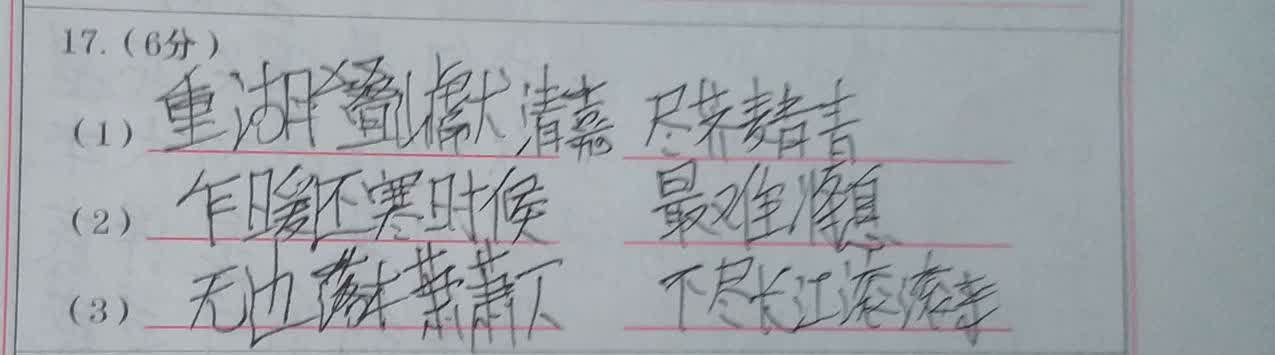 17.(6分)
(1) 重湖叠清嘉
(2) 乍暖还寒时候 最难将息
(3) 无边落木萧萧下 不尽长江滚滚